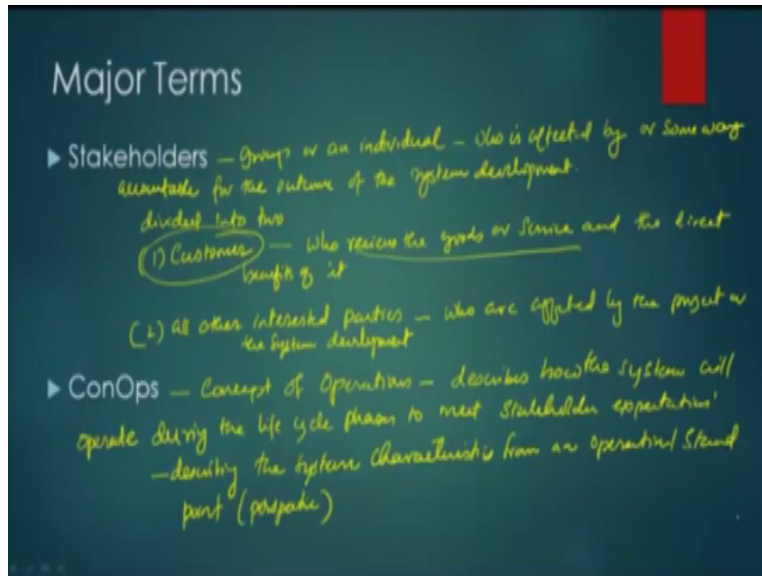 Major Terms
Stakeholders – group or an individual – who is affected by or some way
accountable for the outcome of the system development.
divided into two
(1) Customer – who receives the goods or service and the direct
benefits of it
(2) all other interested parties – who are affected by the project or
the system development
ConOps – Concept of Operations – describes how the system will
operate during the life cycle phases to meet stakeholder expectations
– describing the system characteristics from an operational stand
point (perspective)